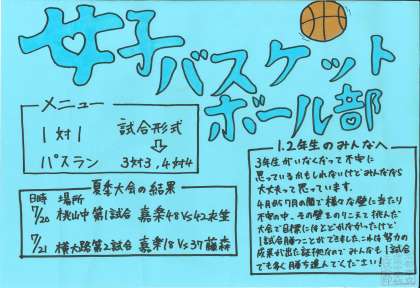 女子バスケット
ボール部
メニュー
1対1
パスラン
試合形式
3対3,4対4
夏季大会の結果
日時 場所
7/20 桃山中 第1試合 嘉楽48 VS 42衣笠
7/21 横大路 第2試合 嘉楽18 VS 37藤森
1.2年生のみんなへ
3年生がいなくなって不安に
思っているかもしれないけどみんななら
大丈夫って思っています。
4月から7月の間で様々な壁に当たり
不安の中、その壁をのりこえて挑んだ
大会で目標にはとどかなかったけど
1試合勝つことができました。これは努力の
成果が出た証拠なのでみんなも1試合
でも多く勝ち進んでください!